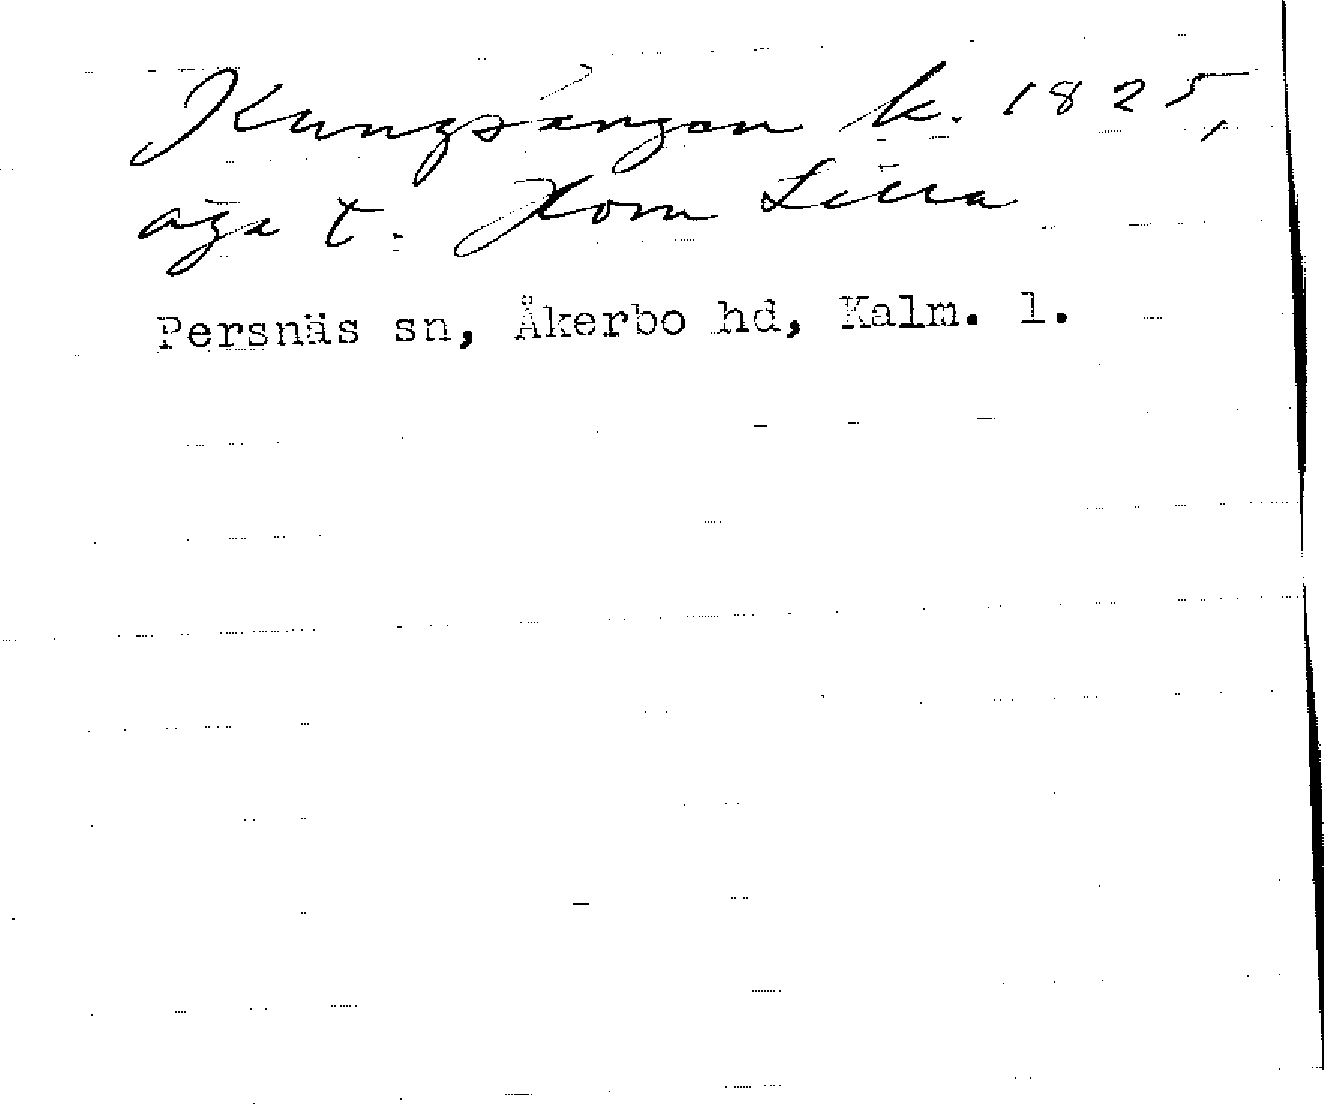 Kungsängen k. 1825,
äga t. Horn Lilla
Persnäs sn, Åkerbo hd, Kalm. l.